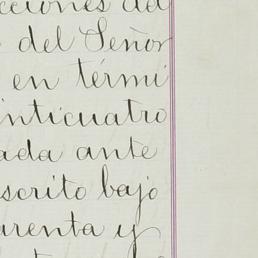 cciones ad
del Señor
en térmi
inticuatro
ada ante
scrito bajo
arenta y